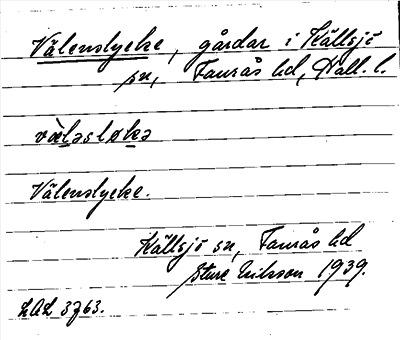 Välenslycke, gårdar i Källsjö
sn, Faurås hd, Hall. l.
vä̀ləsløkə
Välenslycke.
Källsjö sn, Faurås hd
Sture Eriksson 1939.
LAL 3763.